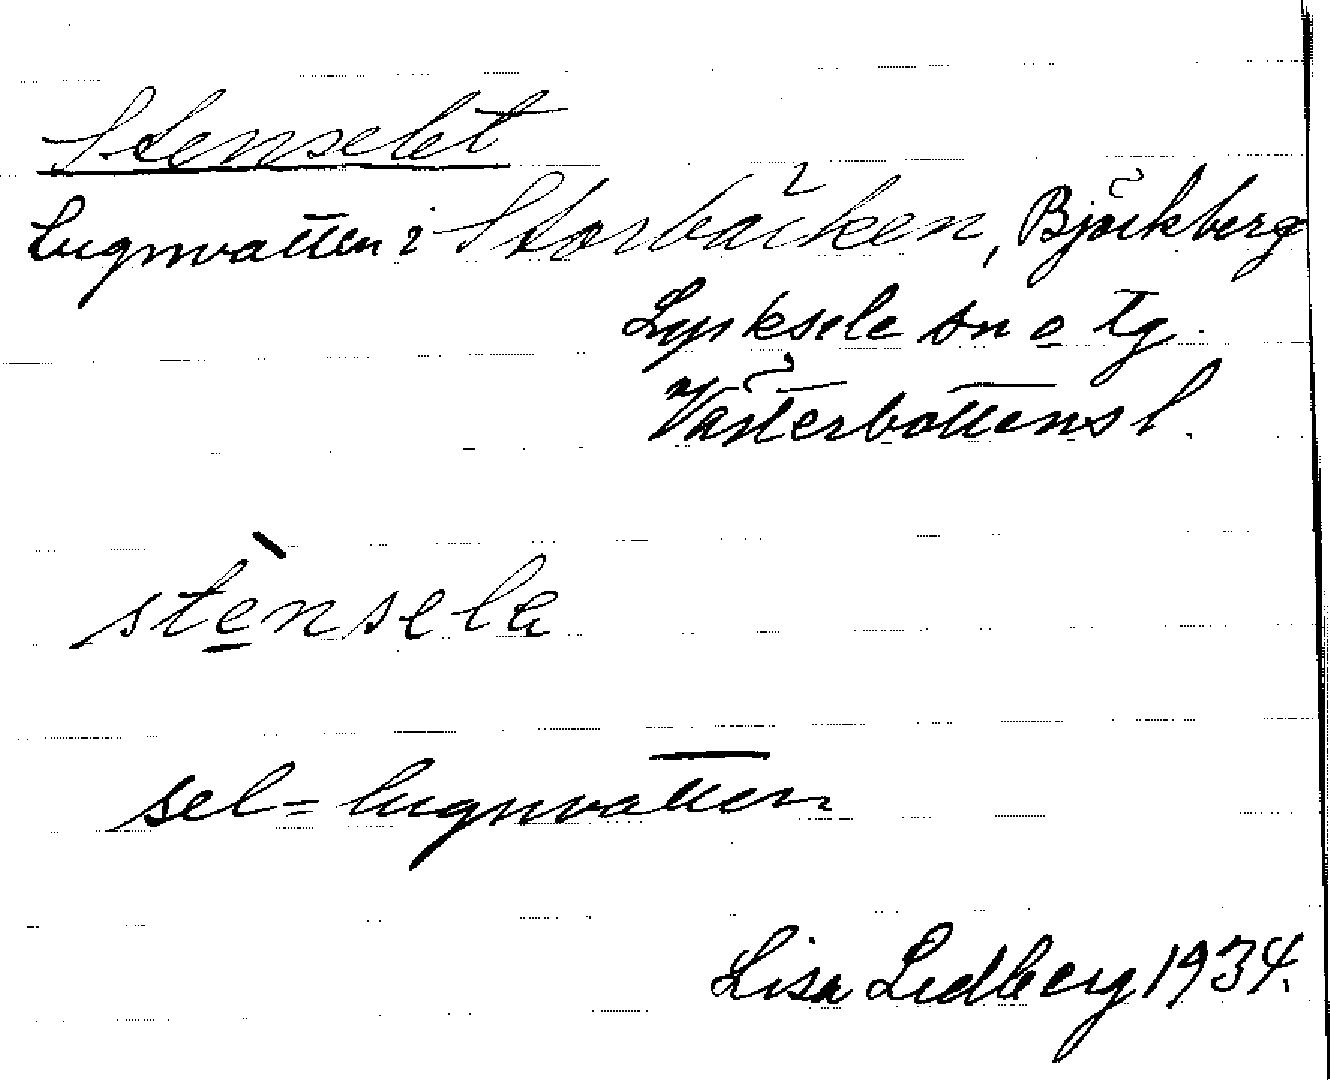 Stenselet
lugnvatten i Storbäcken, Björkberg
Lycksele sn o tg.
Västerbottens l.
stènsele
sel = lugnvatten
Lisa Lidberg 1934.